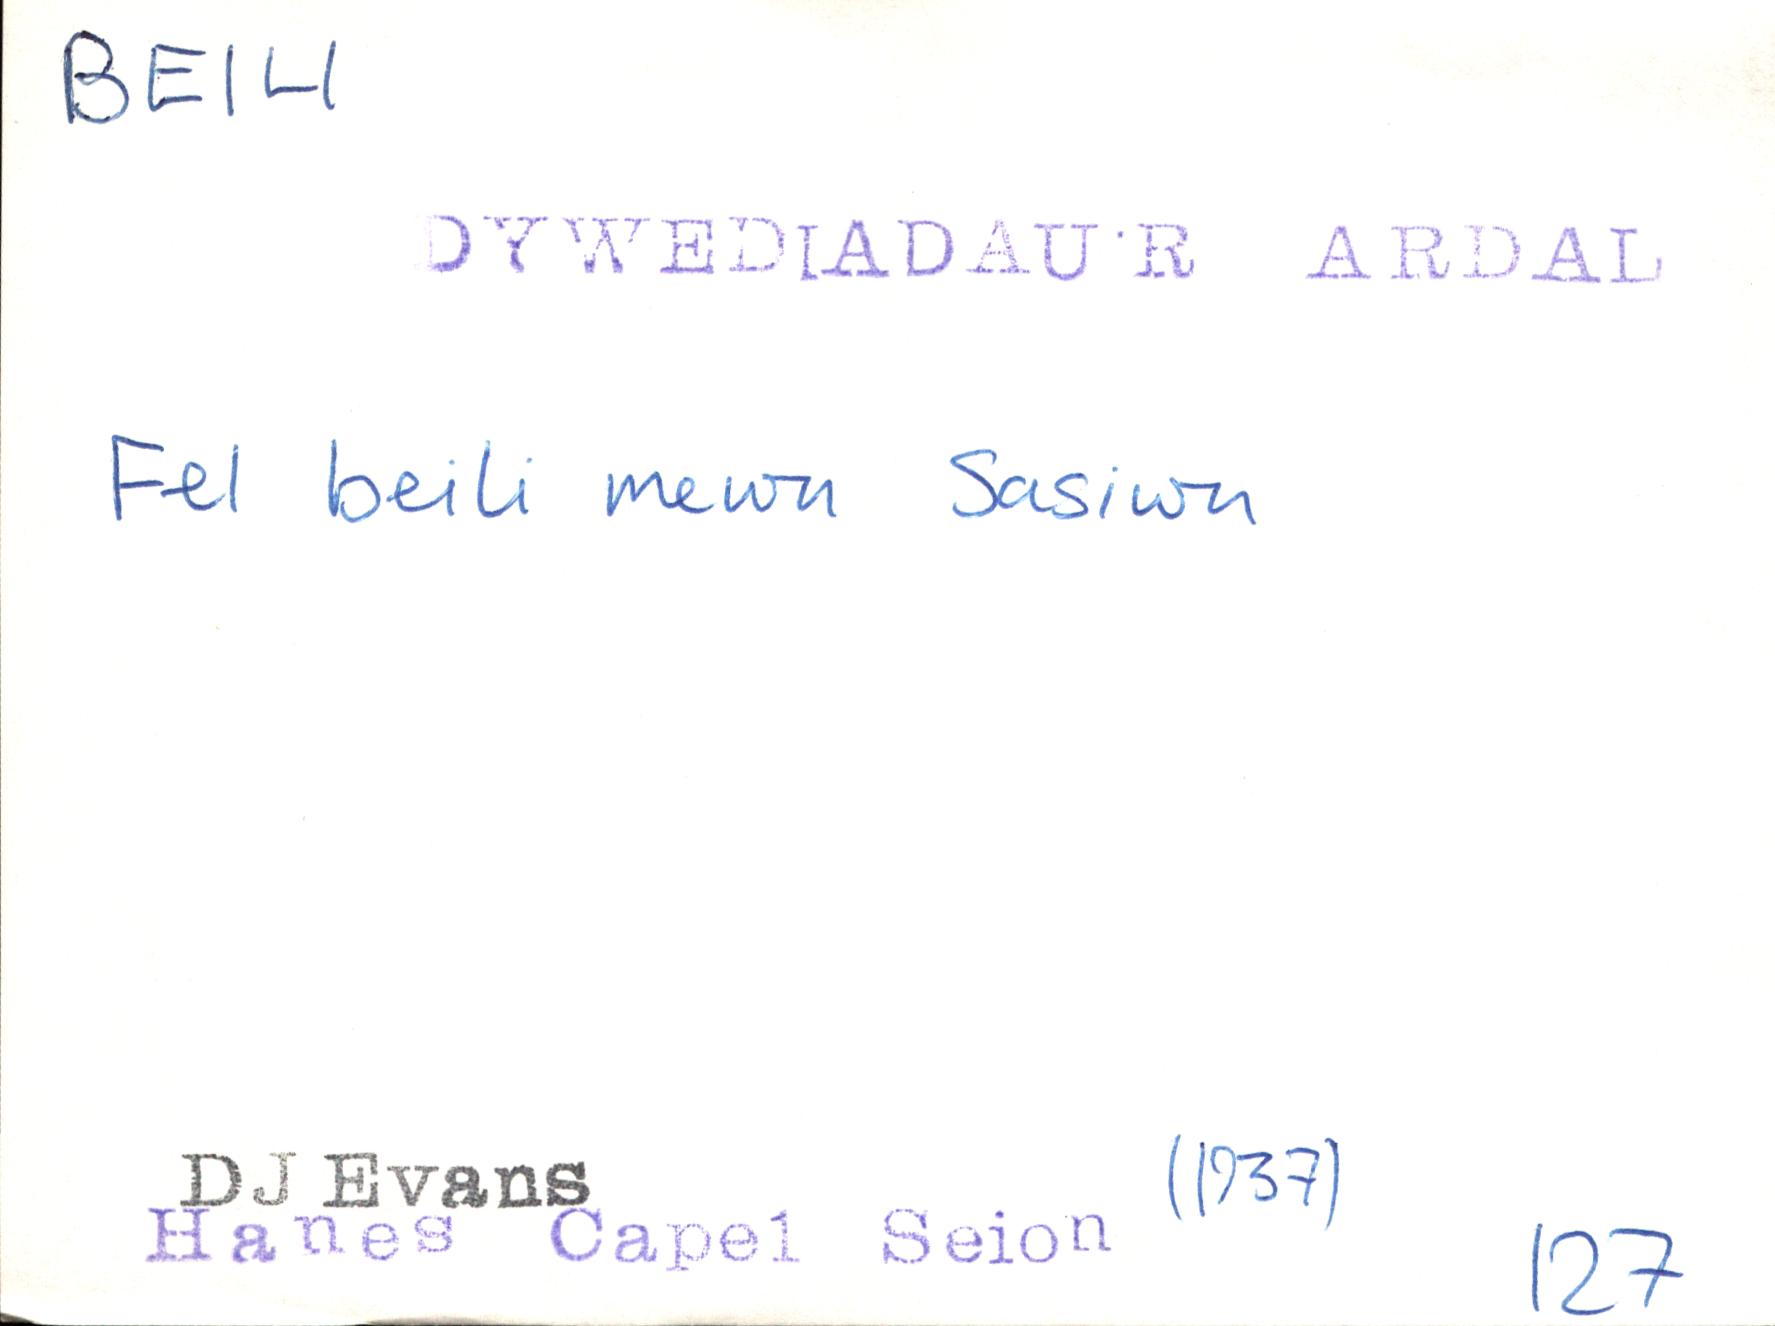 BEILI
DYWEDIADAU'R ARDAL
Fel beili mewn Sasiwn
DJ Evans
(1937)
Hanes Capel Seion
127